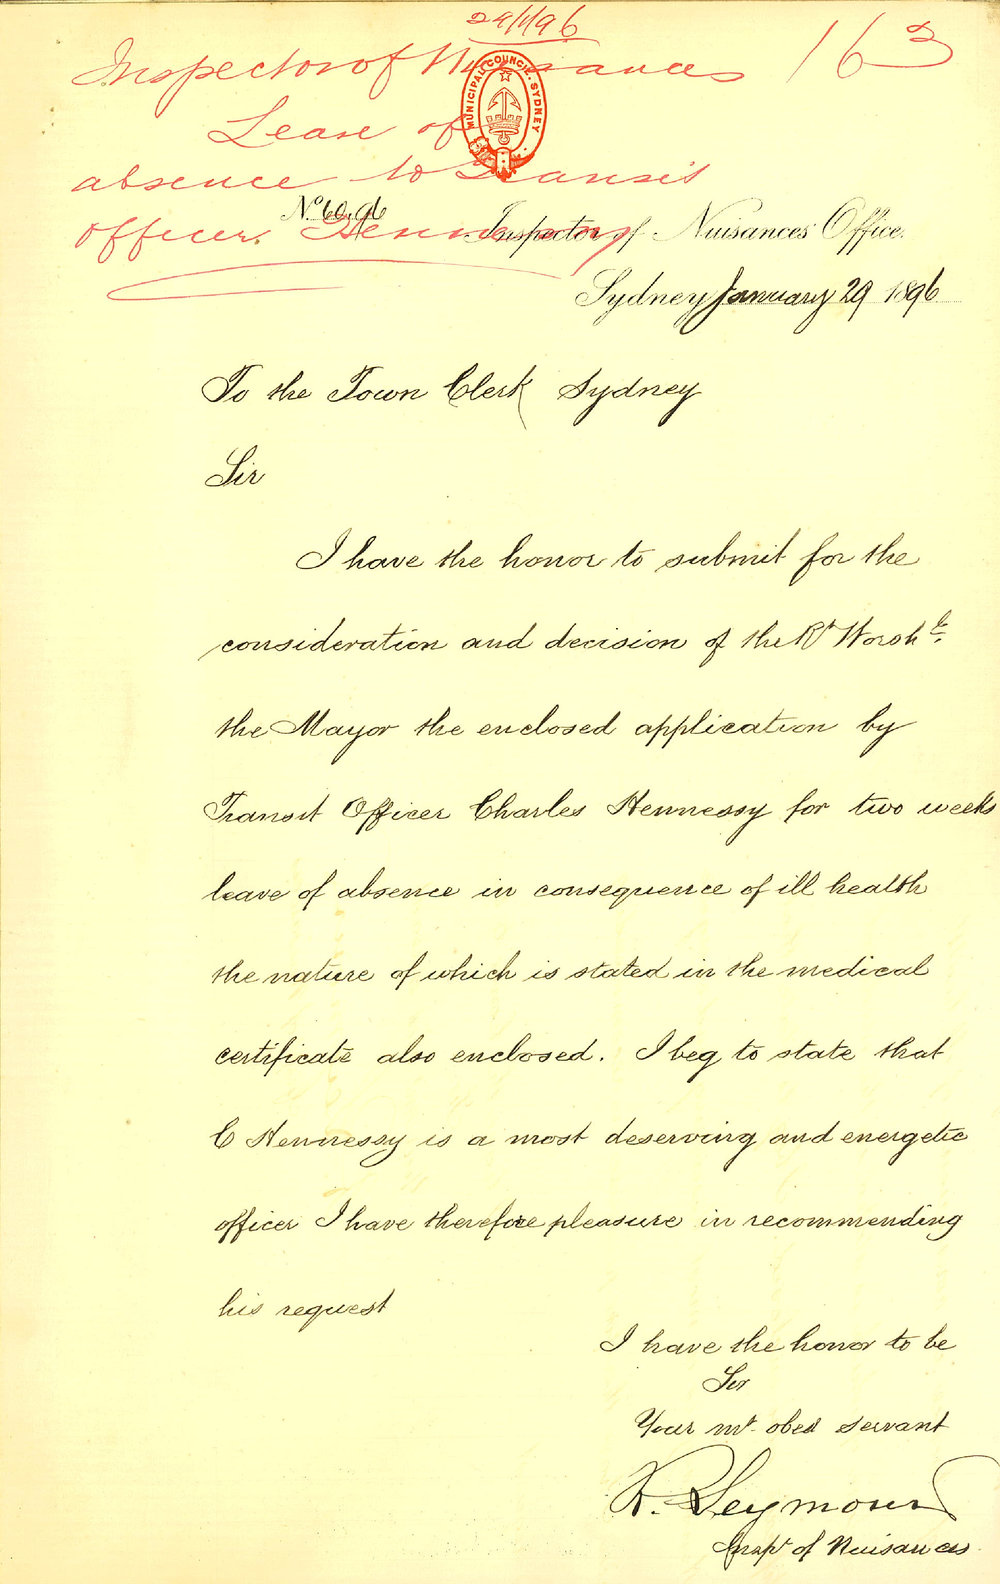 29/1/96
Inspector of Nuisances 163
Leave of
MUNICIPAL COUNCIL. SYDNEY
absence to Transit
officer. Hennessy
No. 60.96 Inspector of Nuisances' Office.
Sydney January 29 1896
To the Town Clerk Sydney
Sir
I have the honor to submit for the
consideration and decision of the Rt Worshl.
the Mayor the enclosed application by
Transit Officer Charles Hennessy for two weeks
leave of absence in consequence of ill health
the nature of which is stated in the medical
certificate also enclosed. I beg to state that
C Hennessy is a most deserving and energetic
officer I have therefore pleasure in recommending
his request
I have the honor to be
Sir
Your mt. obed servant
R. Seymour
Inspt of Nuisances